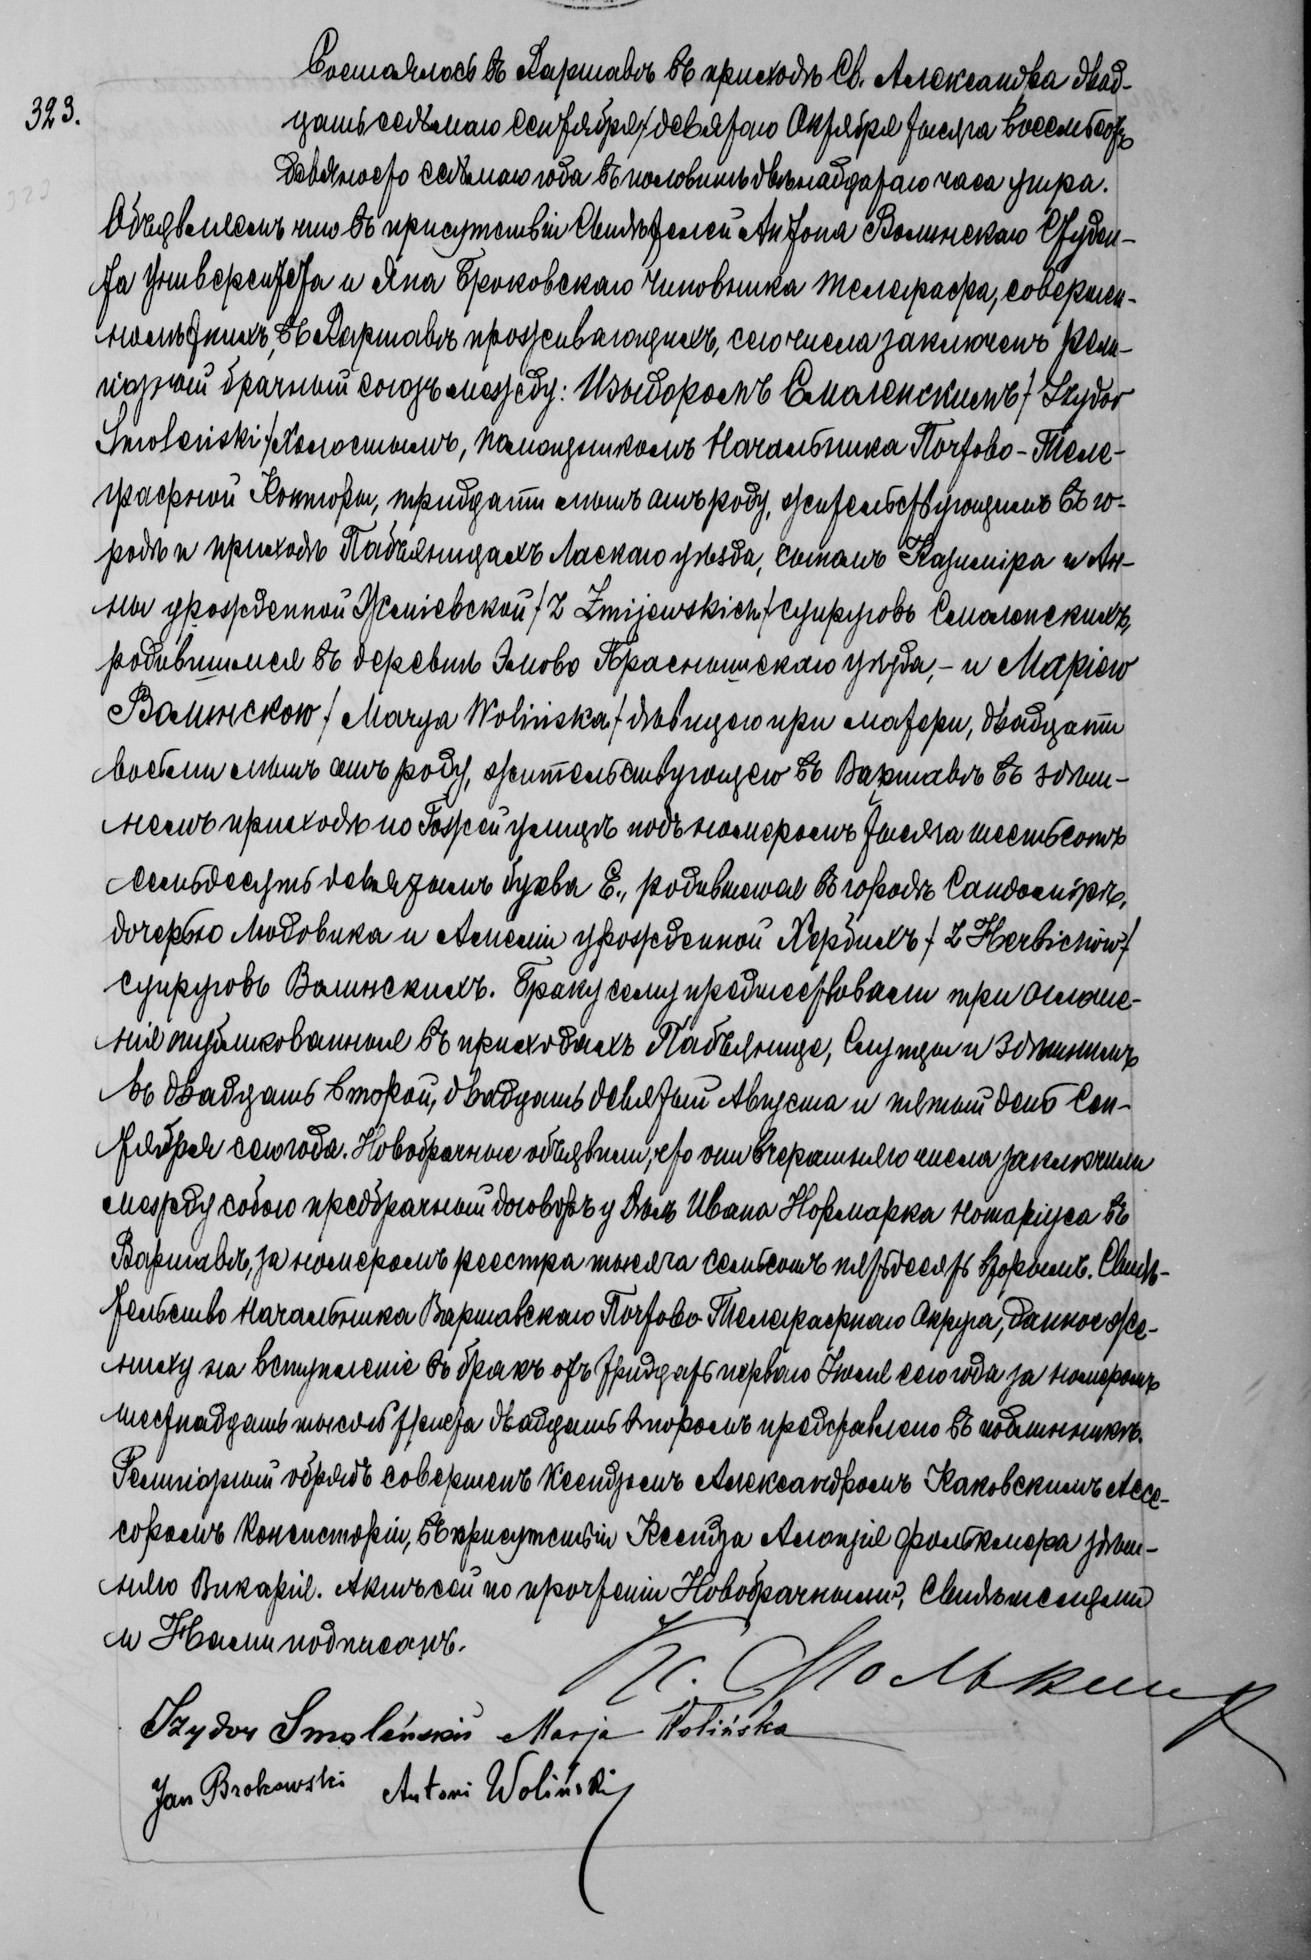 Состоялось въ Варшавѣ въ приходѣ Св. Александра двад-
323.
цать седьмаго Сентября/девятаго Октября тысяча восемьсотъ
девяносто седьмаго года въ половинѣ двѣнадцатаго часа утра.
Объявляемъ что въ присутствіи Свидѣтелей Антона Волинскаго Студен-
та Университета и Яна Броковскаго Чиновника Телеграфа, совершен-
нолѣтнихъ, въ Варшавѣ проживающихъ, сего числа заключенъ рели-
гіозный брачный союзъ между: Изыдоромъ Смоленскимъ/Izydor
Smoleński/Холостымъ, Помощникомъ Начальника Почтово-Теле-
графной Конторы, тридцати лѣтъ отъ роду, жительствующимъ въ го-
родѣ и приходѣ Пабіяницахъ Ласкаго уѣзда, сыномъ Казиміра и Ан-
ны урожденной Жміевской/z Żmijewskich/супруговъ Смоленскихъ,
родившимся въ деревнѣ Эмово Праснышскаго уѣзда,- и Маріею
Волинскою/Marya Wolińska/дѣвицею при матери, двадцати
восьми лѣтъ отъ роду, жительствующею въ Варшавѣ въ здѣш-
немъ приходѣ по Гожей улицѣ подъ номеромъ тысяча шестьсотъ
семьдесятъ девятымъ буква Е., родившаяся въ городѣ Сандомірѣ,
дочерью Людовика и Амеліи урожденной Хербихъ/z Herbichów/
супруговъ Волинскихъ. Браку сему предшествовали три оглаше-
нія опубликованныя въ приходахъ Пабіянице, Слупцы и здѣшнимъ
въ двадцать второй, двадцать девятый Августа и пятый день Сен-
тября сего года. Новобрачные объявили, что они вчерашняго числа заключили
между собою предбрачный договоръ у дѣлъ Ивана Нормарка Нотаріуса въ
Варшавѣ, за номеромъ реестра тысяча семьсотъ пятьдесятъ вторымъ. Свидѣ-
тельство Начальника Варшавскаго Почтово-Телеграфнаго Округа, данное же-
ниху на вступленіе въ бракъ отъ тридцать перваго Іюля сего года за номеромъ
шестнадцать тысячъ триста двадцать вторымъ представлено въ подлинникѣ.
Религіозный обрядъ совершенъ Ксендзомъ Александромъ Каковскимъ Ассе-
соромъ Консисторіи, въ присутствіи Ксендза Алоизія Фолькмера здѣш-
няго Викарія. Актъ сей по прочтеніи Новобрачными, Свидѣтелями
и Нами подписанъ.
Izydor Smoleński Marja Wolińska
Jan Brokowski Antoni Woliński